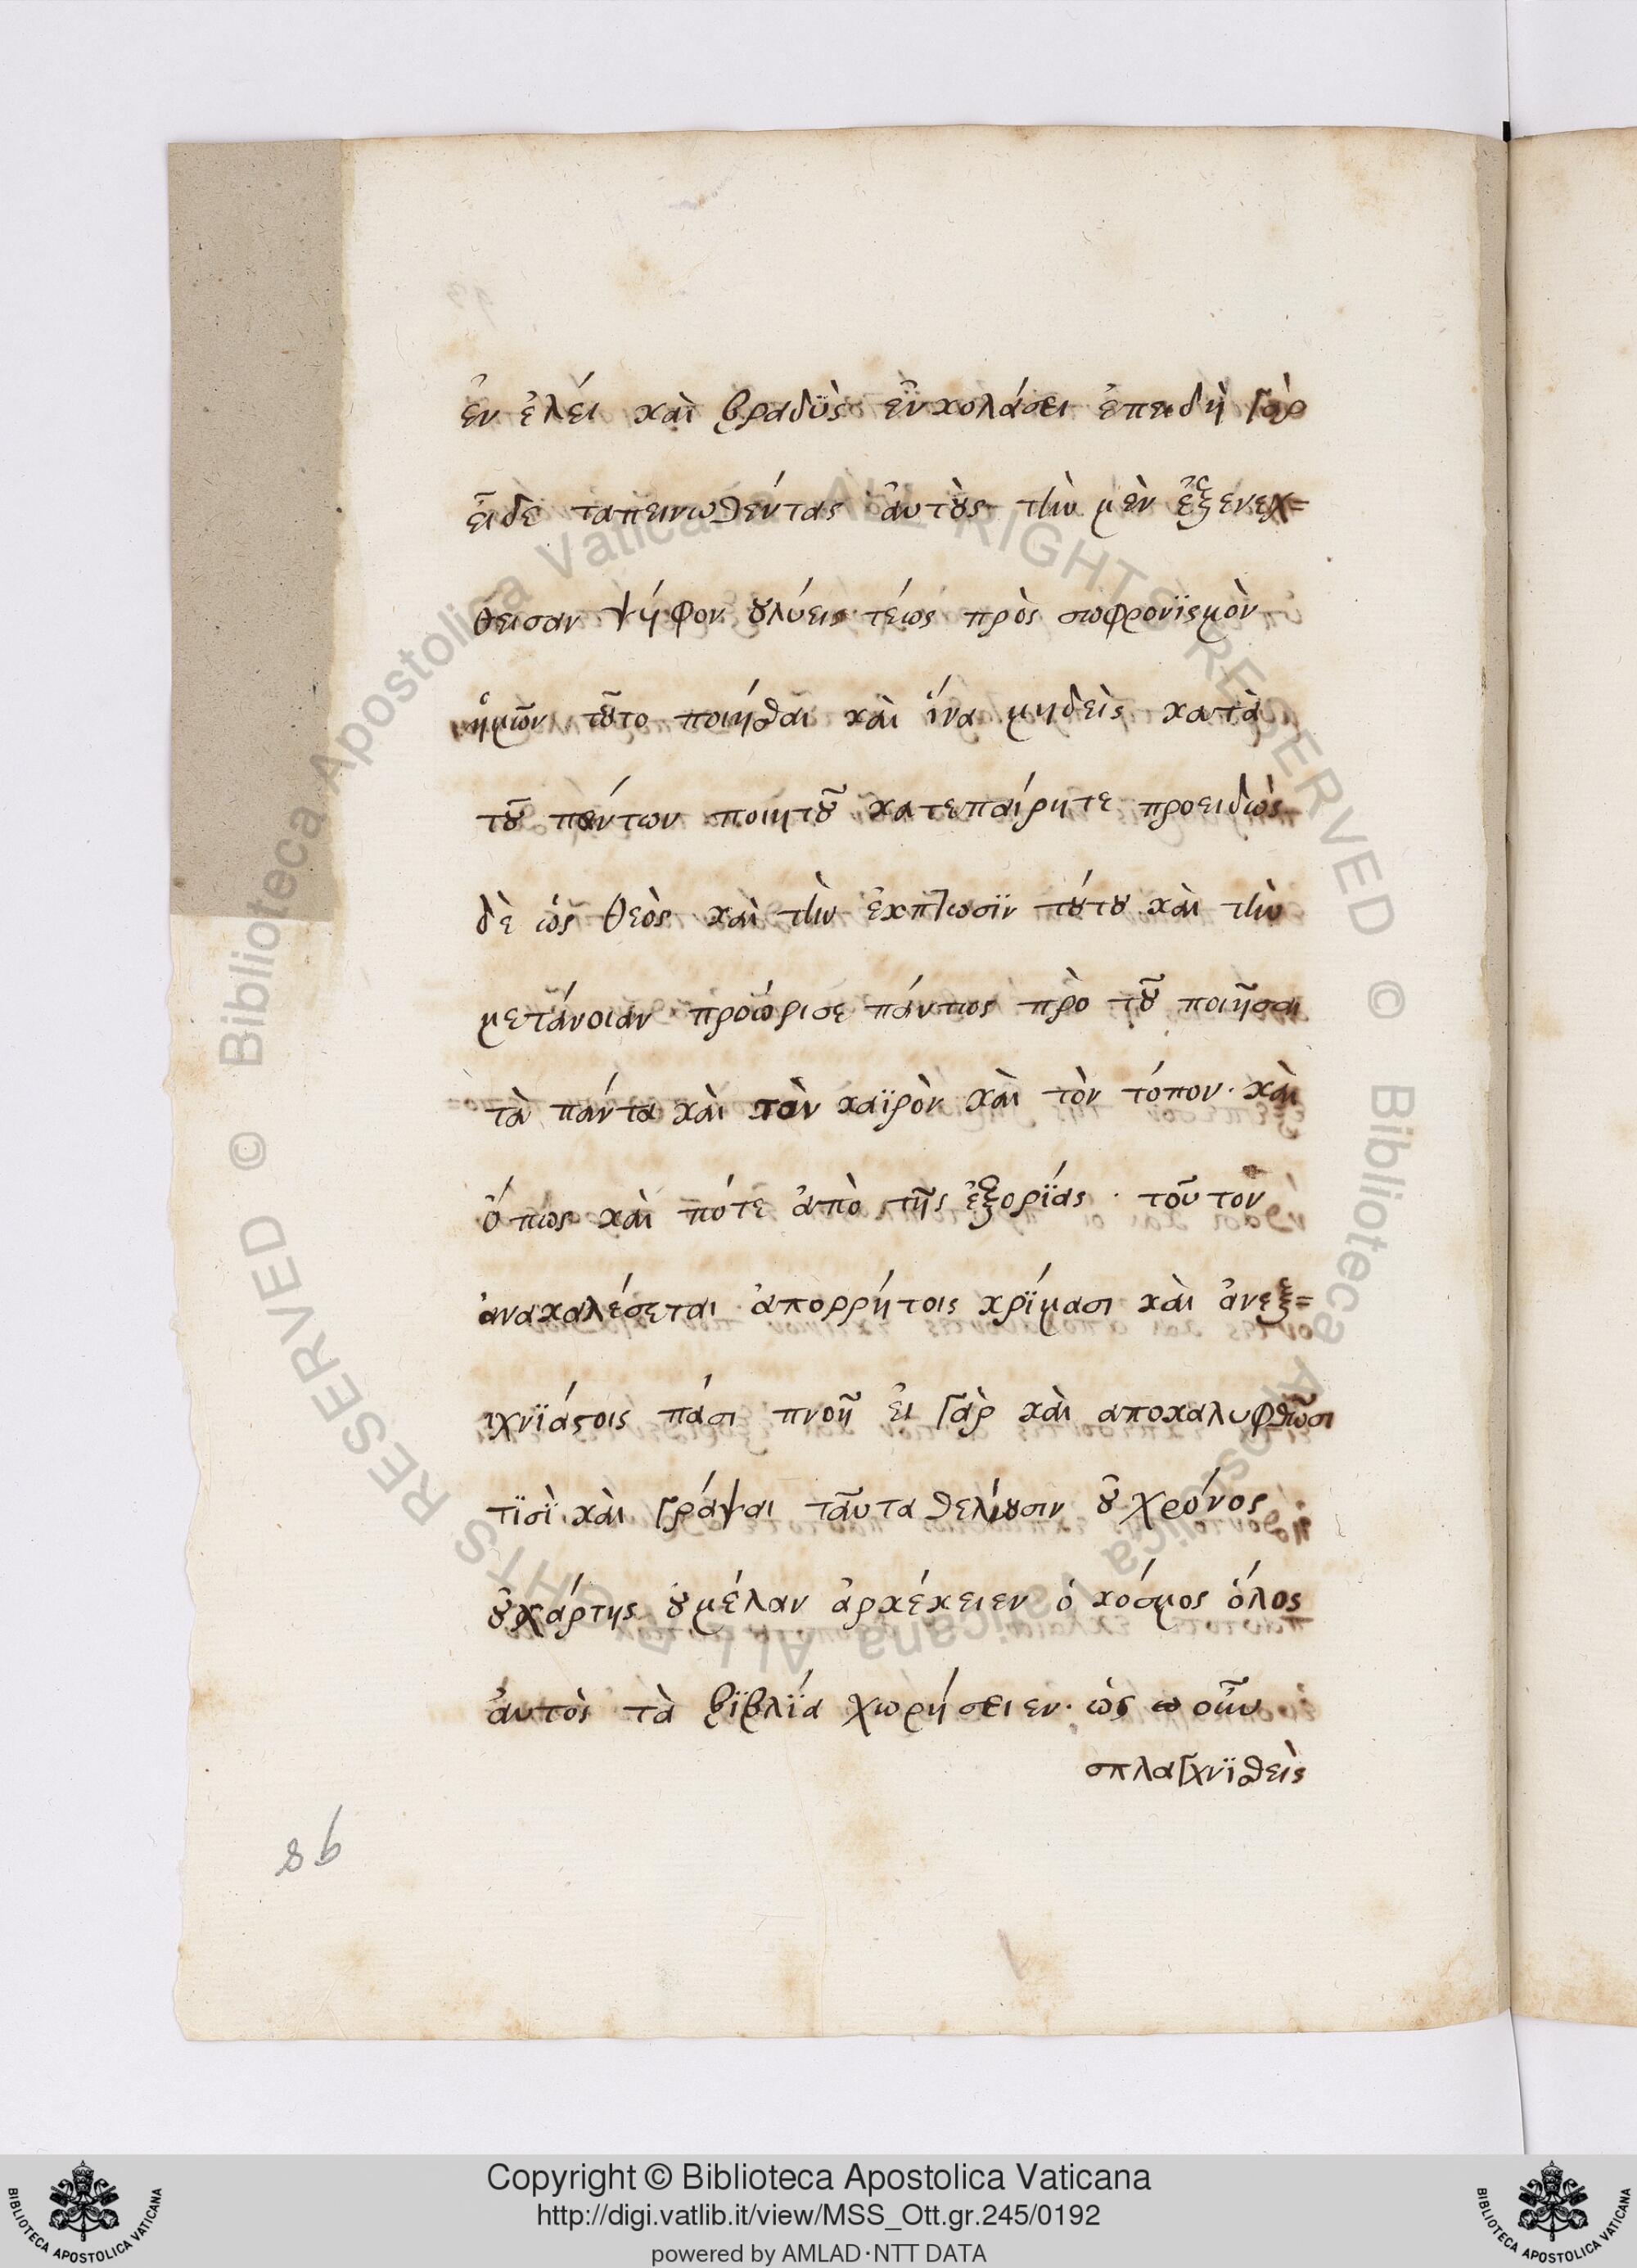 ἐν ἐλέει καὶ βραδὺς ἐν κολάσει ἐπειδὴ γὰρ
εἶδε ταπεινωθέντας ἀυτοὺς τὴν μὲν ἐξενεχ=
θεισαν ψήφον ου λύεις τέως πρὸς σωφρονϊσμὸν
ἡμῶν τοῦτο ποιῆσθαι καὶ ἵνα μηδεὶς κατὰ
τοῦ πάντων ποιητοῦ κατεπαίρητε προειδὼς
δὲ ὡς θεὸς καὶ τὴν ἐκπτωσϊν τούτου καὶ τὴν
μετάνοιαν προώρισε πάντως πρὸ τοῦ ποιῆσαι
τὰ πάντα καὶ τὸν καϊρὸν καὶ τὸν τόπον · καὶ
ὅπως καὶ πότε ἀπὸ τῆς ἐξορϊάς · τοῦτον
ἀνακαλέσεται ἀπορρήτοις κρϊμασι καὶ ἀνεξ=
ιχνϊάστοις πάσι πνοῆ ἐι γὰρ καὶ αποκαλυφθῶσι
τϊσὶ καὶ γράψαι ταῦτα θελήουσιν οὐ χρόνος
οὐ χάρτης ου μέλαν ἀρκέκειεν ὁ κόσμος ὅλος
ἀυτὸς τὰ βϊβλϊά χωρήσειεν · ὡς οὖν
σπλαγχνϊσθεὶς
98
Copyright © Biblioteca Apostolica Vaticana
http://digi.vatlib.it/view/MSS_Ott.gr.245/0192
powered by AMLAD·NTT DATA
BIBLIOTECA APOSTOLICA VATICANA
BIBLIOTECA APOSTOLICA VATICANA
© Biblioteca Apostolica Vaticana ALL RIGHTS RESERVED © Biblioteca Apostolica Vaticana ALL RIGHTS RESERVED